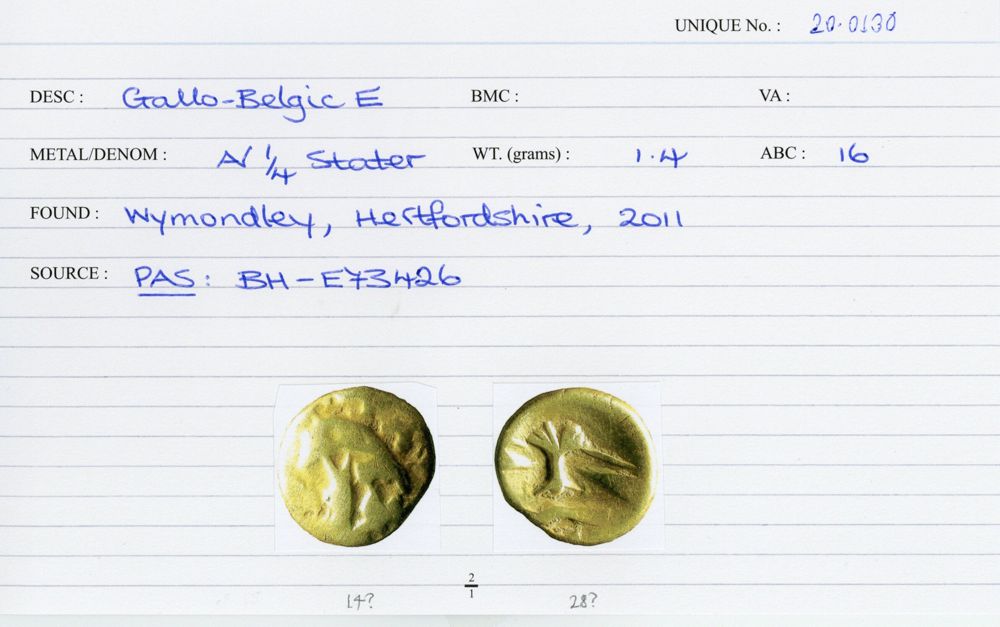 UNIQUE No. : 20.0130
DESC : Gallo-Belgic E BMC : VA :
METAL/DENOM : A/ 1/4 Stater WT. (grams) : 1.4 ABC : 16
FOUND : Wymondley, Hertfordshire, 2011
SOURCE : PAS : BH-E73426
2/1
14? 28?